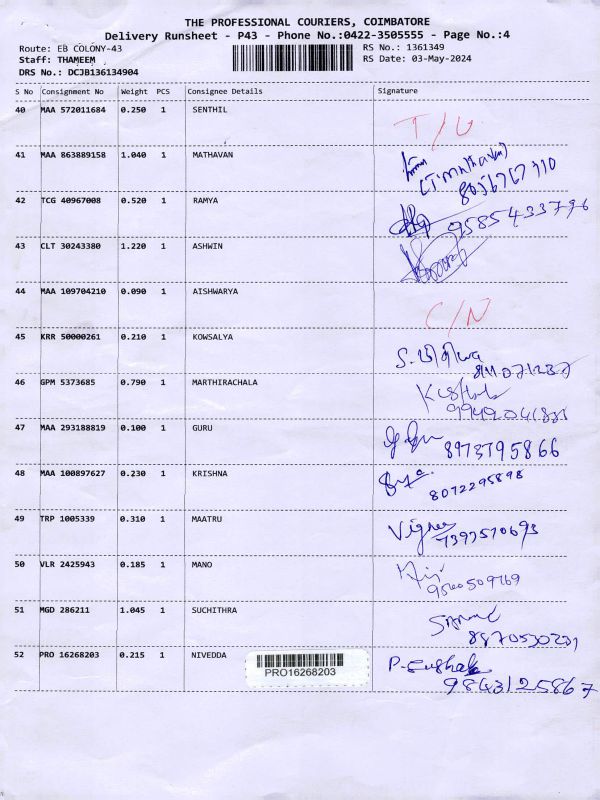 THE PROFESSIONAL COURIERS, COIMBATORE
Delivery Runsheet - P43 - Phone No.:0422-3505555 - Page No.:4
Route: EB COLONY-43 RS No.: 1361349
Staff: THAMEEM RS Date: 03-May-2024
DRS No.: DCJB136134904
S No Consignment No Weight PCS Consignee Details Signature
40 MAA 572011684 0.250 1 SENTHIL
41 MAA 863889158 1.040 1 MATHAVAN
8056767710
42 TCG 40967008 0.520 1 RAMYA
9585433796
43 CLT 30243380 1.220 1 ASHWIN
44 MAA 109704210 0.090 1 AISHWARYA
C/N
45 KRR 50000261 0.210 1 KOWSALYA
46 GPM 5373685 0.790 1 MARTHIRACHALA
47 MAA 293188819 0.100 1 GURU
8973795866
48 MAA 100897627 0.230 1 KRISHNA
8072295898
49 TRP 1005339 0.310 1 MAATRU
7397570693
50 VLR 2425943 0.185 1 MANO
51 MGD 286211 1.045 1 SUCHITHRA
52 PRO 16268203 0.215 1 NIVEDDA
PRO16268203
9843125867